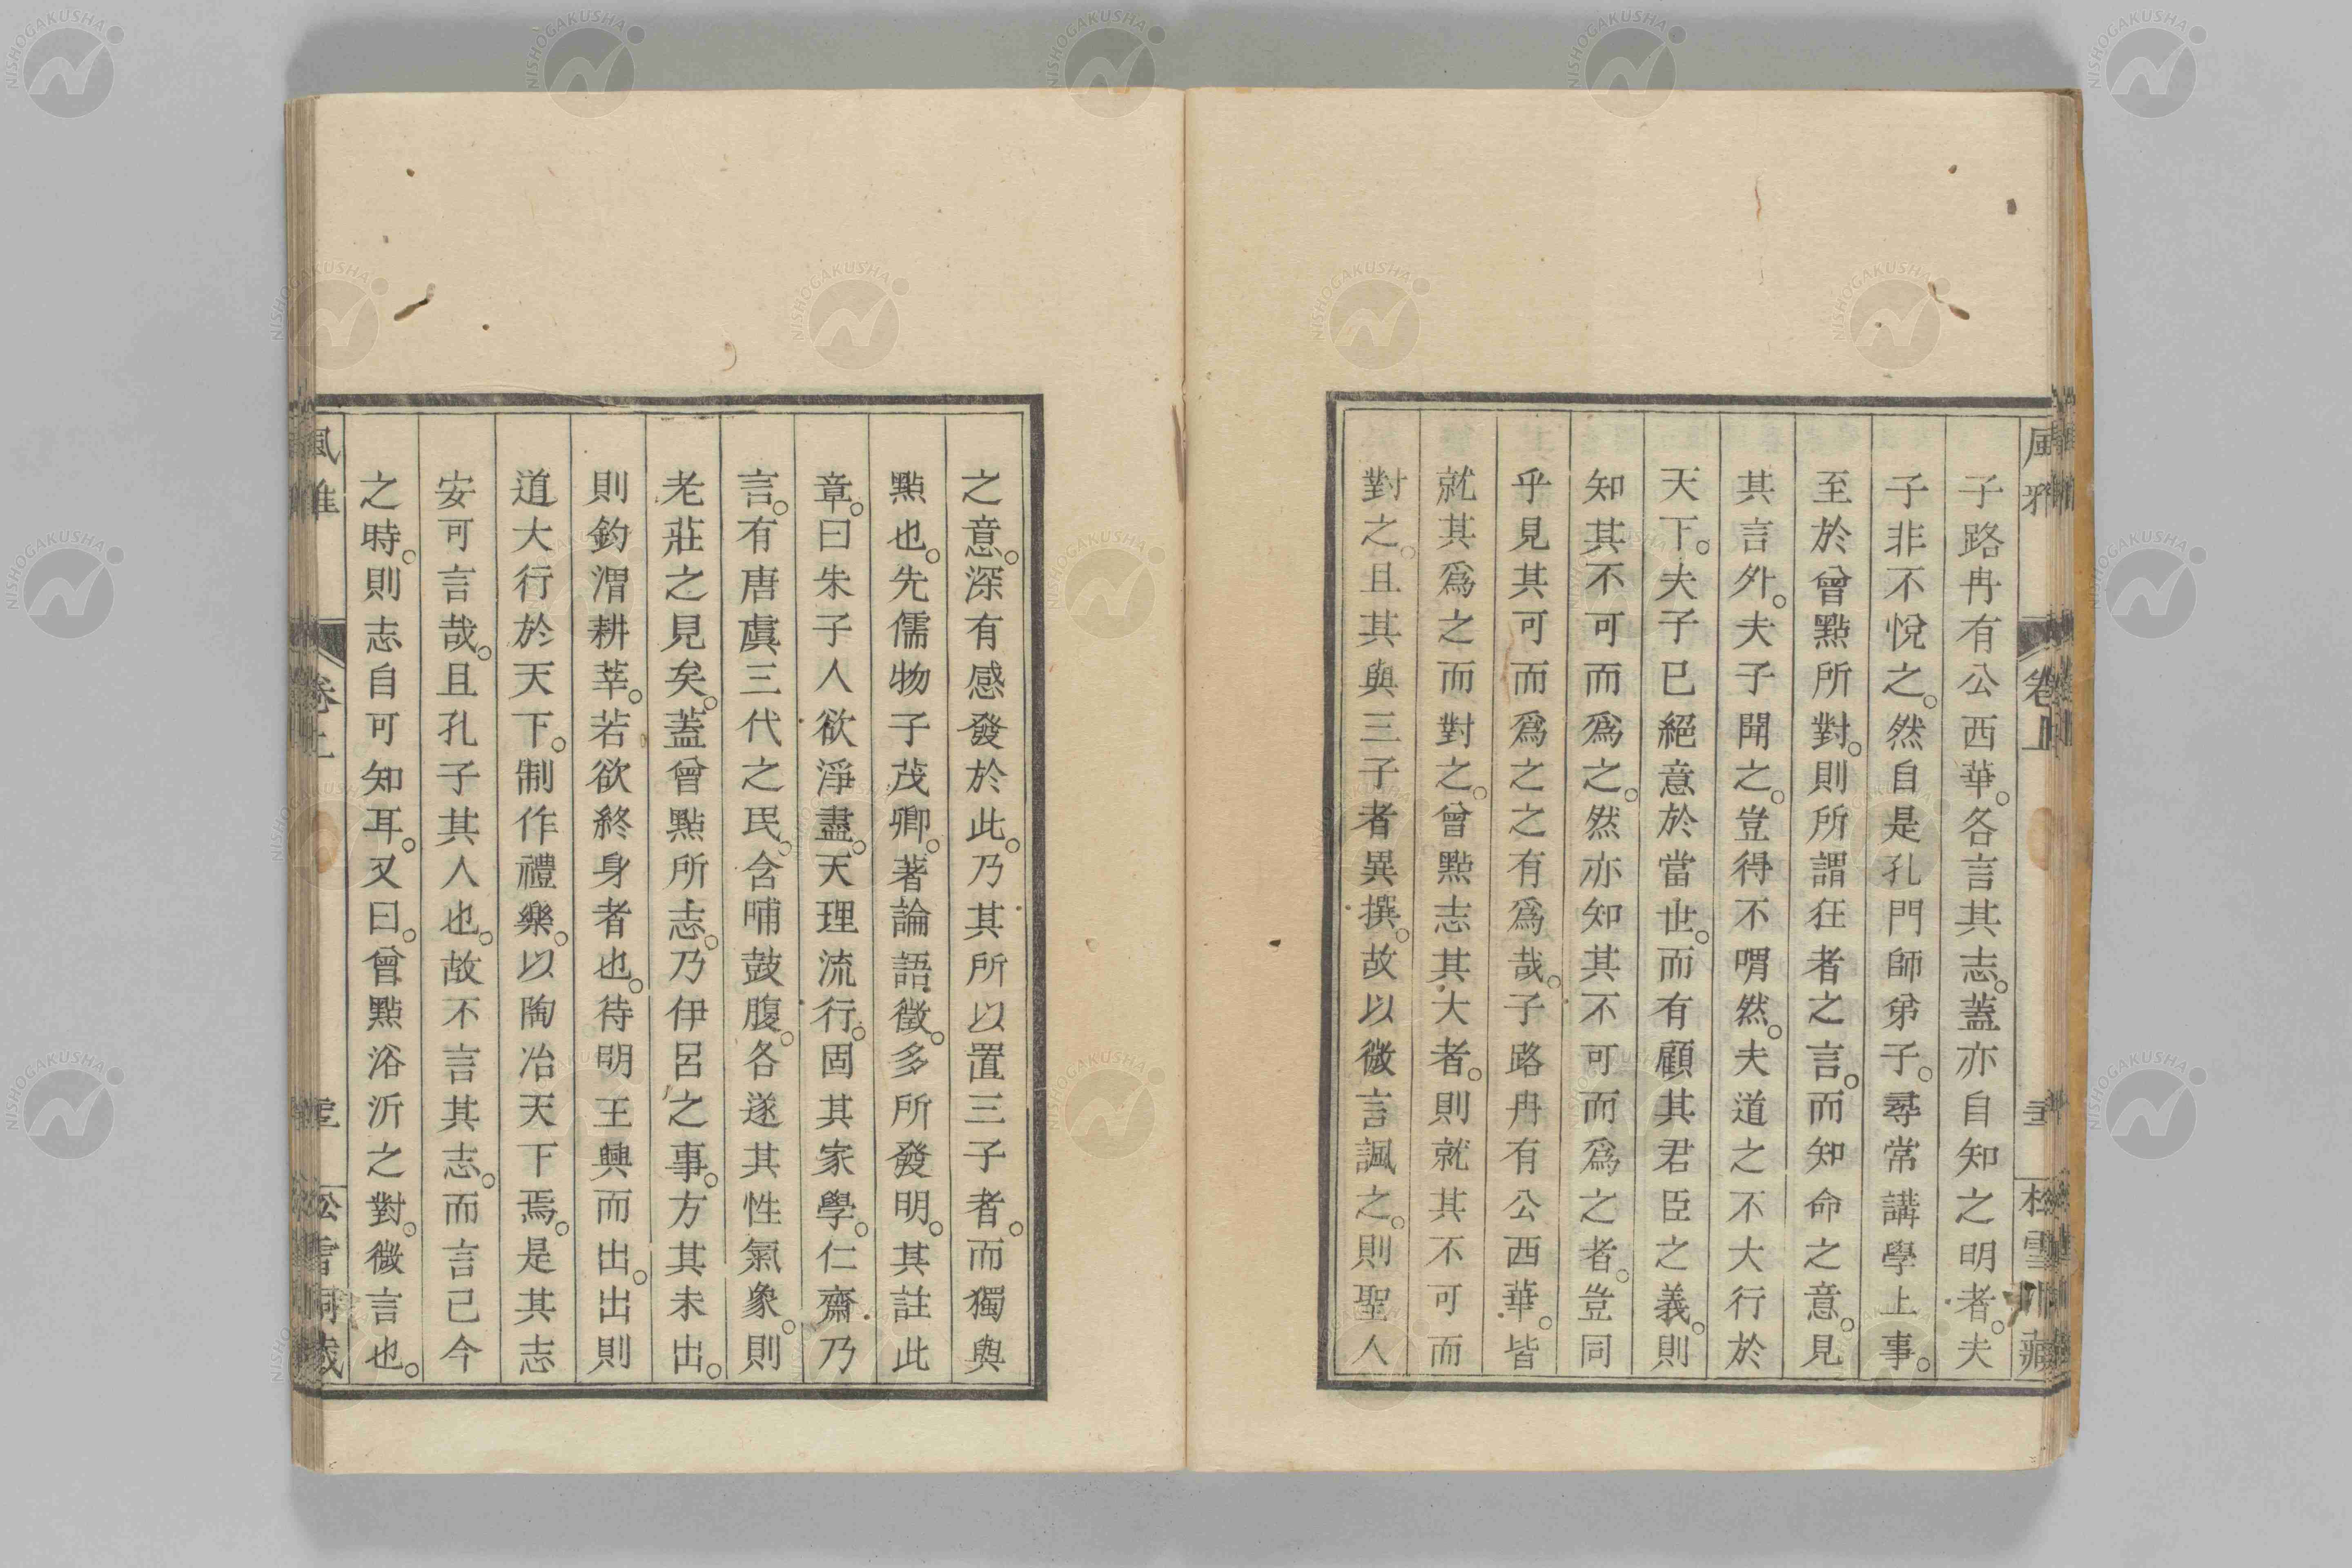 子路冉有公西華。各言其志。蓋亦自知之明者。夫
子非不悅之。然自是孔門師弟子。尋常講學上事。
至於曾點所對。則所謂狂者之言。而知命之意。見
其言外。夫子聞之。豈得不喟然。夫道之不大行於
天下。夫子已絕意於當世。而有顧其君臣之義。則
知其不可而爲之。然亦知其不可而爲之者。豈同
乎見其可而爲之之有爲哉。子路冉有公西華。皆
就其爲之而對之。曾點志其大者。則就其不可而
對之。且其與三子者異撰。故以微言諷之。則聖人
之意。深有感發於此。乃其所以置三子者。而獨與
點也。先儒物子茂卿。著論語徵。多所發明。其註此
章。曰朱子人欲淨盡。天理流行。固其家學。仁齋乃
言。有唐虞三代之民。含哺鼓腹。各遂其性氣象。則
老莊之見矣。蓋曾點所志。乃伊呂之事。方其未出。
則釣渭耕莘。若欲終身者也。待明王興而出。出則
道大行於天下。制作禮樂。以陶冶天下焉。是其志
安可言哉。且孔子其人也。故不言其志。而言己今
之時。則志自可知耳。又曰。曾點浴沂之對。微言也。
風雅
卷上
松雪
藏
NISHOGAKUSHA